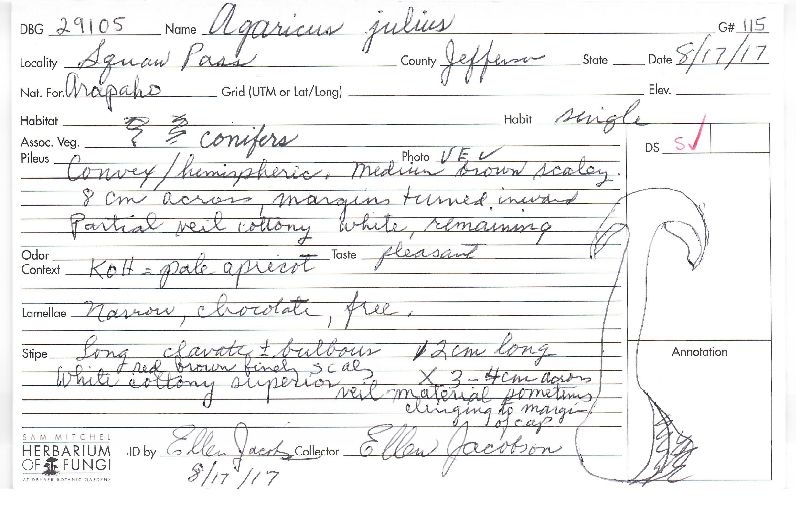 DBG 29105 Name Agaricus julius G# 115
Locality Squaw Pass County Jefferson State Date 8/17/17
Nat. For. Arapaho Grid (UTM or Lat/Long) Elev.
Habitat Habit single
Assoc. Veg. conifers DS S✓
Pileus Convex/hemispheric. Medium brown scaley. Photo VE ✓
8 cm across, margins turned inward
Partial veil cottony white, remaining
Odor Taste pleasant
Context KOH = pale apricot
Lamellae Narrow, chocolate, free.
Stipe Long clavate ± bulbous 12cm long Annotation
red brown finely scaly X 3-4cm across
White cottony superior veil material sometimes
clinging to margin
of cap
SAM MITCHEL
HERBARIUM
OF FUNGI
AT DENVER BOTANIC GARDENS
ID by Ellen Jacobs Collector Ellen Jacobson
8/17/17